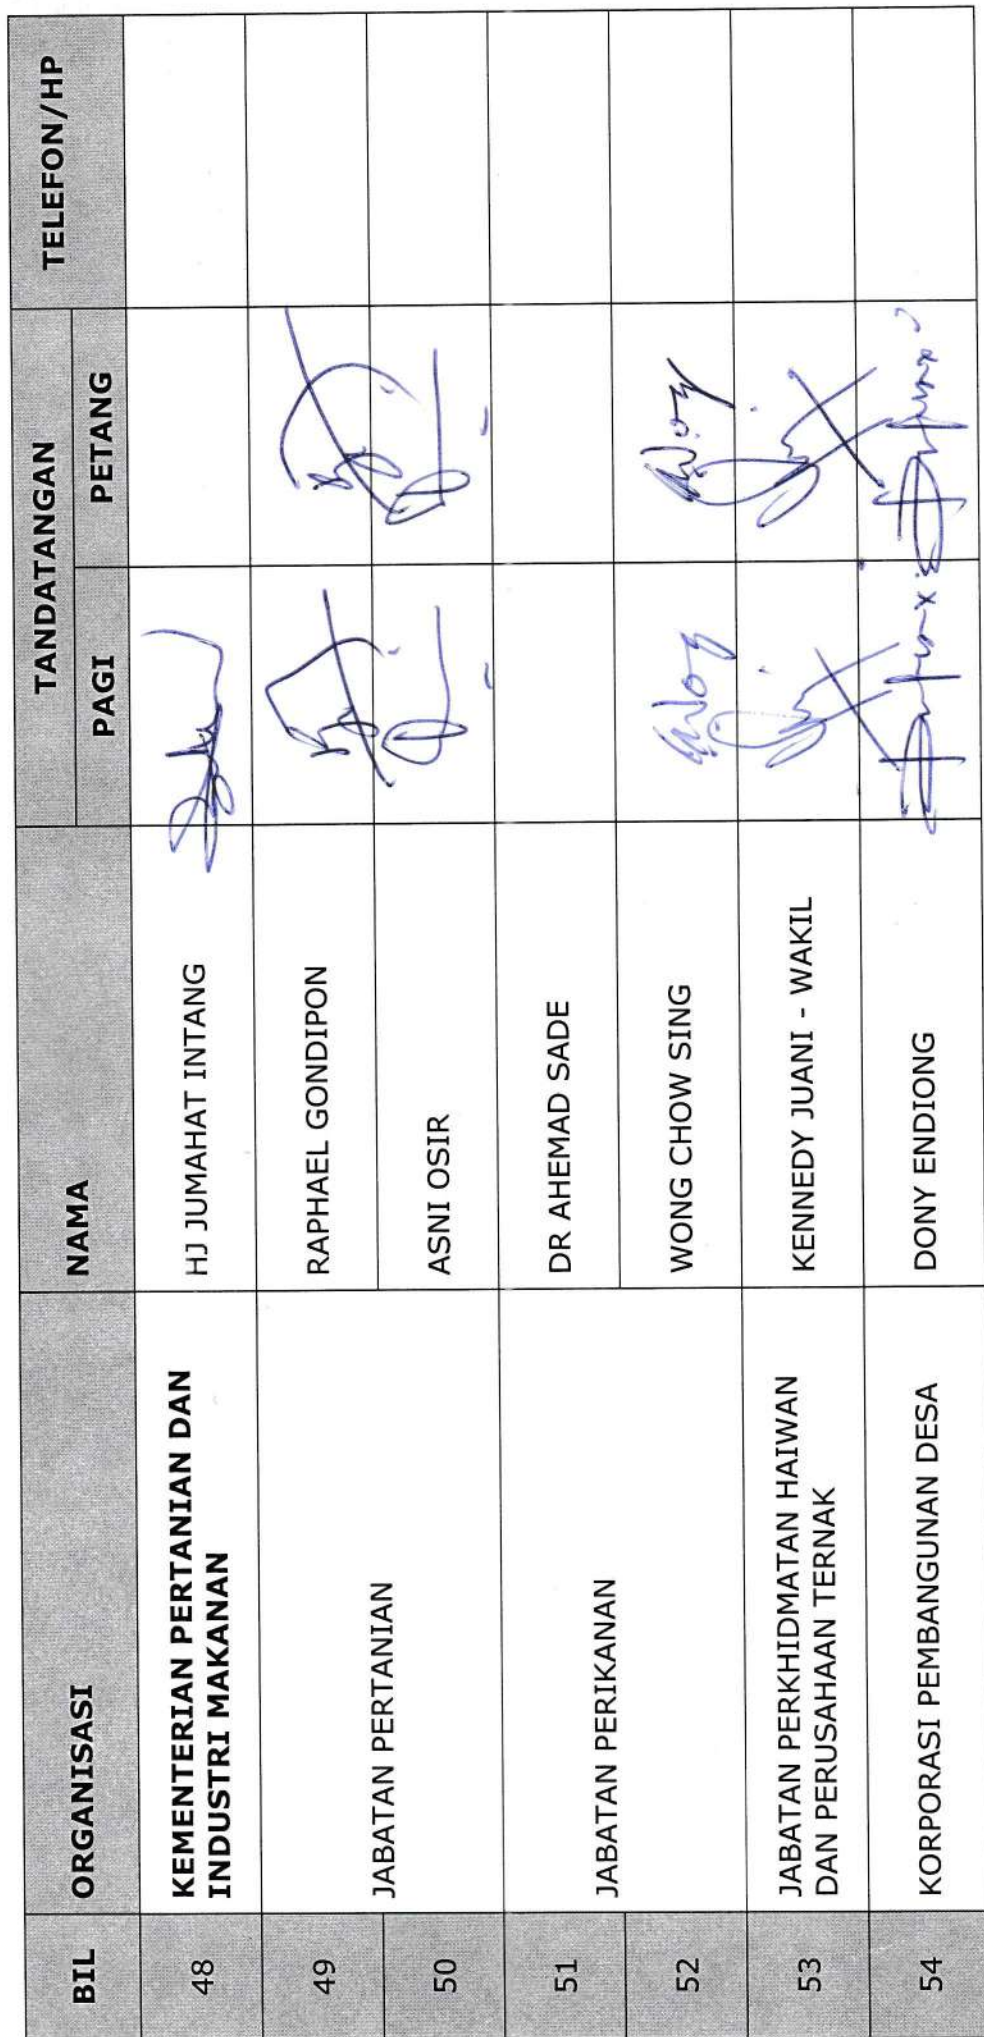 BIL ORGANISASI NAMA TANDATANGAN TELEFON/HP
PAGI PETANG
48 KEMENTERIAN PERTANIAN DAN
INDUSTRI MAKANAN HJ JUMAHAT INTANG
49 JABATAN PERTANIAN RAPHAEL GONDIPON
50 ASNI OSIR
51 JABATAN PERIKANAN DR AHEMAD SADE
52 WONG CHOW SING
53 JABATAN PERKHIDMATAN HAIWAN
DAN PERUSAHAAN TERNAK KENNEDY JUANI - WAKIL
54 KORPORASI PEMBANGUNAN DESA DONY ENDIONG